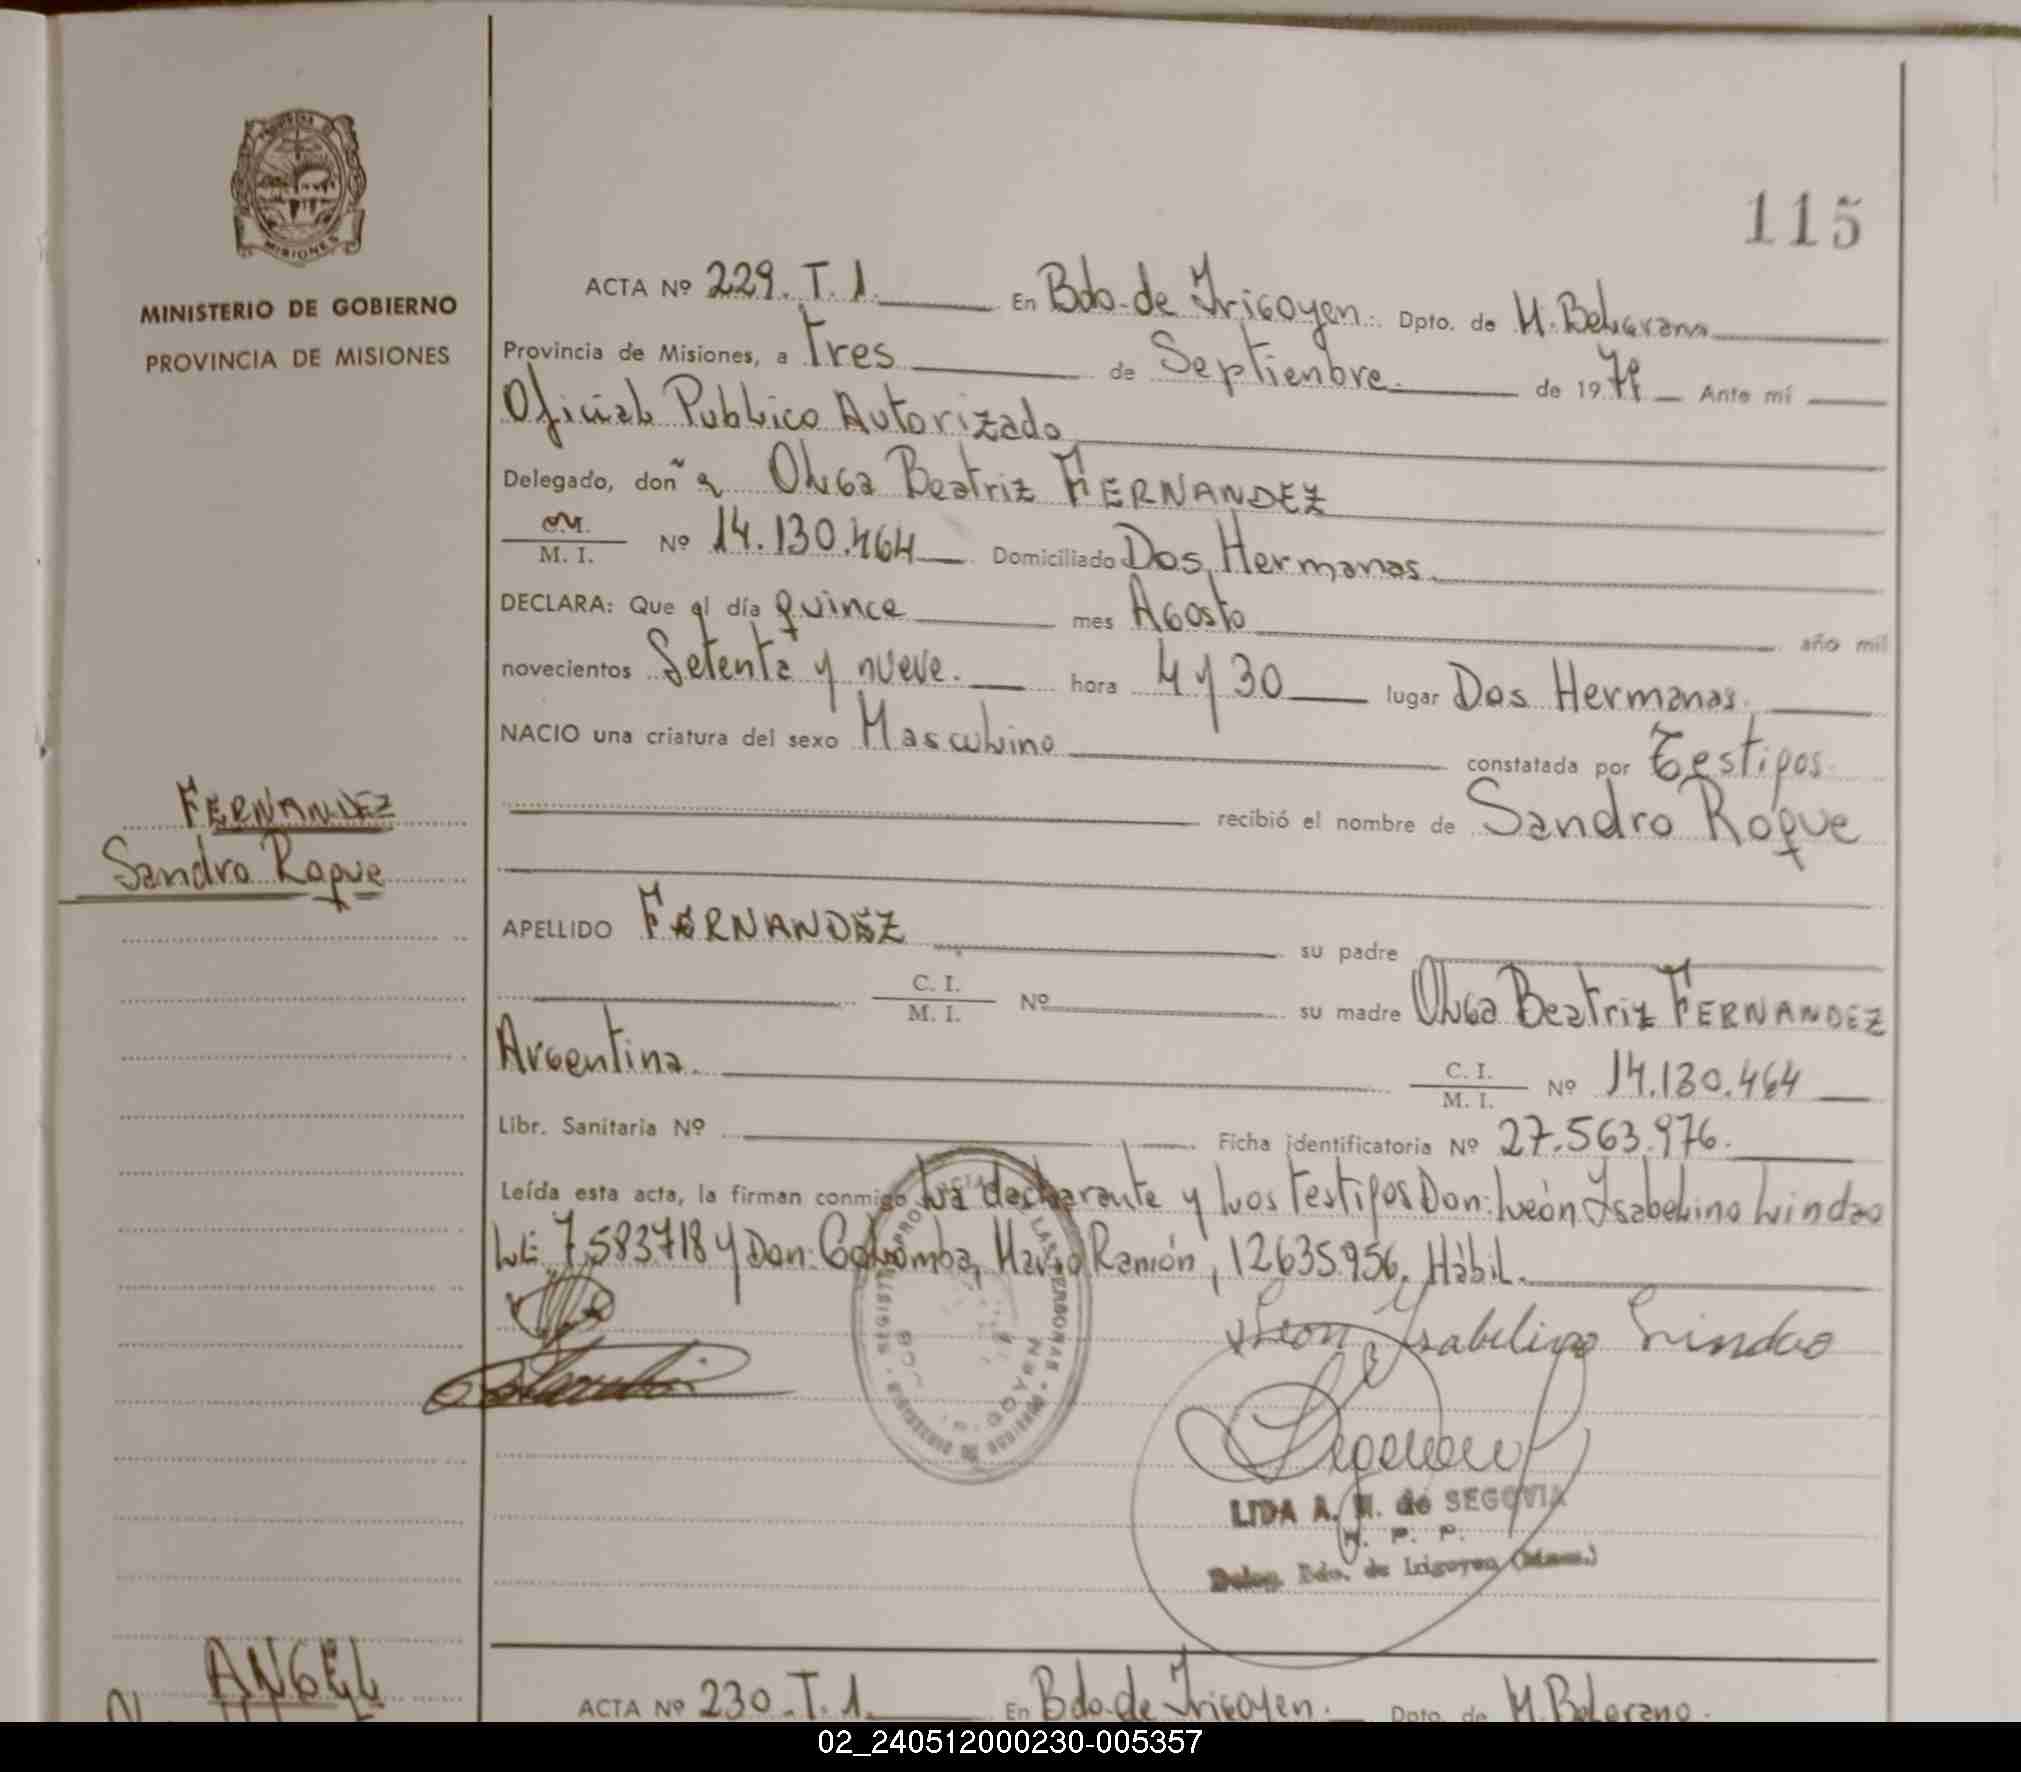 115
MINISTERIO DE GOBIERNO
PROVINCIA DE MISIONES
MISIONES
ACTA Nº 229. T. 1. En Bdo. de Irigoyen. Dpto. de M. Belgrano
Provincia de Misiones, a Tres de Septienbre. de 1979 Ante mí
Oficial Publico Autorizado
Delegado, doña Olga Beatriz FERNANDEZ
M. I. Nº 14.130.464 Domiciliado Dos Hermanas.
DECLARA: Que el día quince mes Agosto año mil
novecientos Setenta y nueve. hora 4 y 30 lugar Dos Hermanas.
NACIO una criatura del sexo Masculino constatada por Testigos.
recibió el nombre de Sandro Roque
FERNANDEZ
Sandro Roque
APELLIDO FERNANDEZ su padre
C. I.
M. I. Nº su madre Olga Beatriz FERNANDEZ
Argentina. C. I.
M. I. Nº 14.130.464
Libr. Sanitaria Nº Ficha identificatoria Nº 27.563.976.
Leída esta acta, la firman conmigo La declarante y los Testigos Don: León Ysabelino Lindao
LE. 7.583718 y Don: Colomba, Mario Ramón, 12635.956. Hábil.
León Ysabelino Lindao
LIDA A. M. de SEGOVIA
Deleg. Bdo. de Irigoyen (Mnes.)
ANGEL
ACTA Nº 230. T. 1. En Bdo. de Irigoyen. Dpto. de M. Belgrano.
02_240512000230-005357